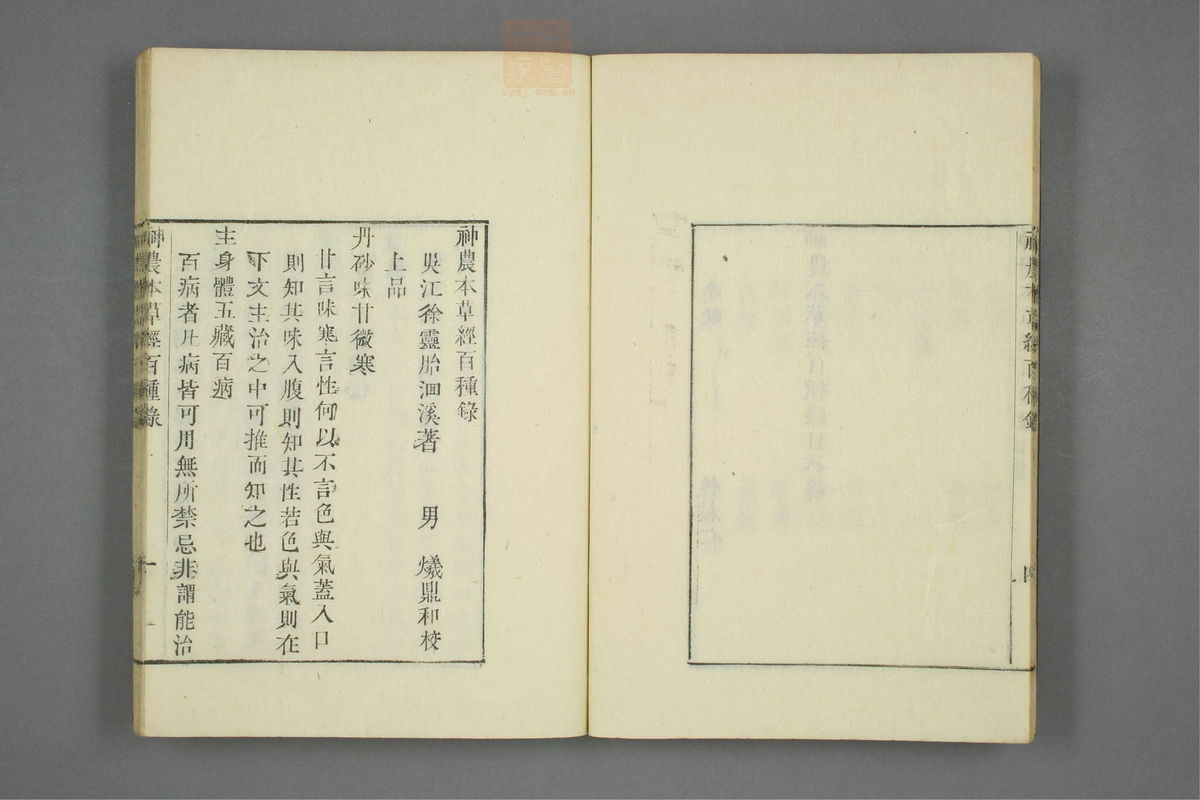 神農本草經百種錄
神農本草經百種錄
吳江徐靈胎洄溪著　男　爔鼎和校
上品
丹砂味甘微寒
甘言味寒言性何以不言色與氣蓋入口
則知其味入腹則知其性若色與氣則在
下文主治之中可推而知之也
主身體五藏百病
百病者凡病皆可用無所禁忌非謂能治
神農本草經百種錄　一
zysj.com.cn